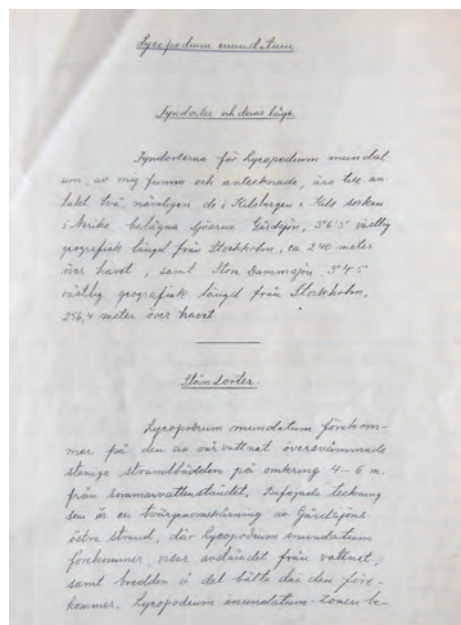 Lycopodium inundatum.
Fyndorter och deras läge.
Fyndorterna för Lycopodium inundat-
um, av mig funna och antecknade, äro till an-
talet två, nämligen de i Kilsbergen i Kils socken
i Nerike belägna sjöarna Gårdsjön, 3°6'5" västlig
geografisk längd från Stockholm, ca 240 meter
över havet, samt Stora Dammsjön 3°4'5"
västlig geografisk längd från Stockholm,
256,4 meter över havet.
Ståndorter.
Lycopodium inundatum förekom-
mer på den av vårvattnet översvämmade
steniga strandbädden på omkring 4–6 m.
från sommarvattenståndet. Bifogade teckning
som är en tvärgenomskärning av Gårdsjöns
östra strand, där Lycopodium inundatum
förekommer, visar avståndet från vattnet,
samt bredden å det bälte där den före-
kommer. Lycopodium inundatum-zonen be-